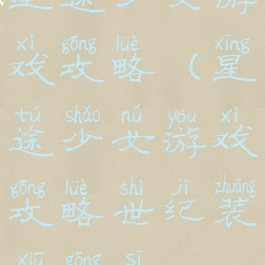 xì gōng lüè xīng
戏攻略(星
tú shǎo nǚ yóu xì
途少女游戏
gōng lüè shì jì zhuāng
攻略世纪装
xiū gōng sī